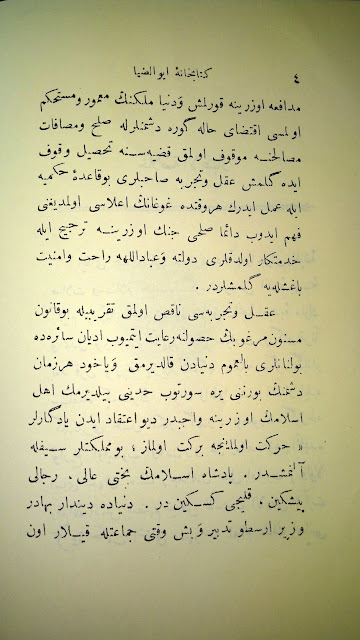 ٤ كتابخانهٔ ابوالضيا
مدافعه اوزرينه قورلمش وَدنيا ملكنك معمور ومستحكم
اولمسى اقتضاى حاله كوره دشمنلرله صلح ومصافات
مصالحنه موقوف اولمق قضيه‌سنه تحصيل وقوف
ايده كلمش عقل وتجربه صاحبلرى بوقاعدهٔ حكميه
ايله عمل ايدرك هروقتده غوغانك اعلاسى اولمديغنى
فهم ايدوب دائما صلحى جنك اوزرينه ترجيح ايله
خدمتكار اولدقلرى دولته وَعباداللهه راحت وامنيت
باغشله‌يه كلمشلردر .
عقل وتجربه‌سى ناقص اولمق تقريبيله بوقانون
مسنون مرغوبك حصولنه رعايت ايتميوب اديان سائره‌ده
بولنانلرى بالعموم دنيادن قالديرمق وَياخود هرزمان
دشمنك بورننى يره سورتوب حدينى بيلديرمك اهل
اسلامك اوزرينه واجبدر ديو اعتقاد ايدن يادكارلر
« حركت اولماينجه بركت اولماز ؛ بومملكتلر سيفله
آلنمشدر . پادشاه اسلامك بختى عالى ، رجالى
پيشكين ، قليجى كسكين در . دنياده ديندار بهادر
وزير ارسطو تدبير وَبش وقتى جماعتله قيلار اون